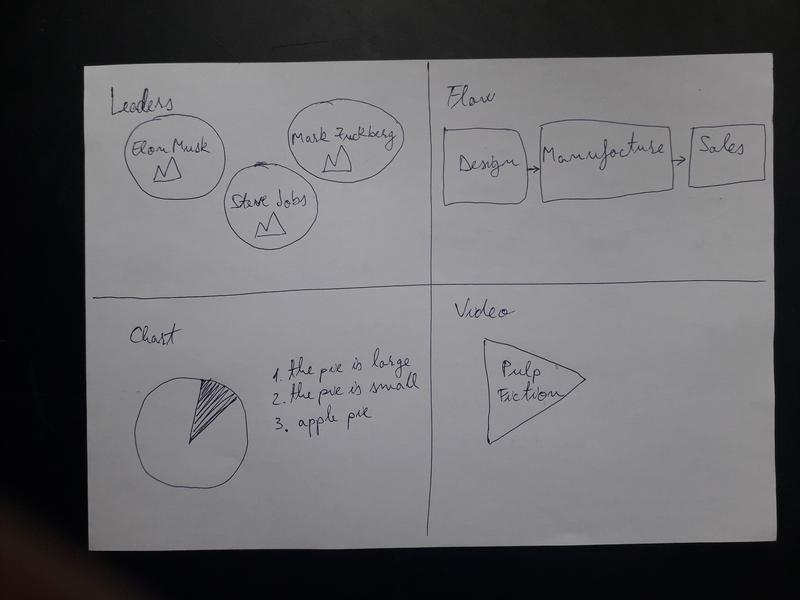 Leaders
Elon Musk
Mark Zuckberg
Steve Jobs
Flow
Design
Manufacture
Sales
Chart
1. the pie is large
2. the pie is small
3. apple pie
Video
Pulp
Fiction